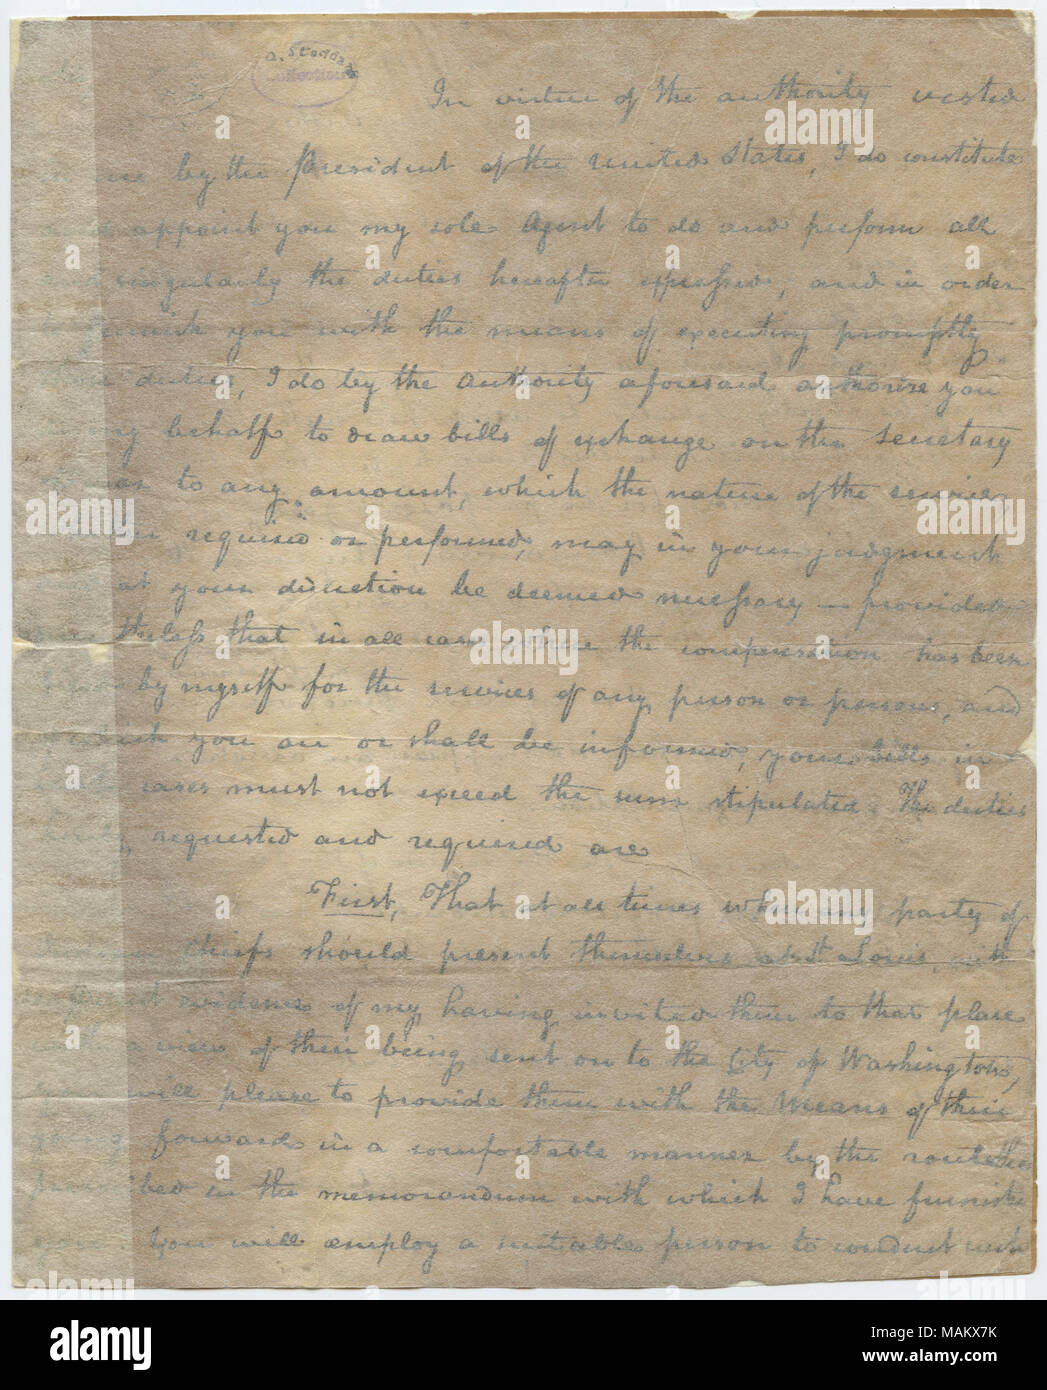 A. Stoddard
Collection
In virtue of the authority vested
in me by the President of the United States, I do constitute
and appoint you my sole Agent to do and perform all
singularly the duties hereafter expressed, and in order
to furnish you with the means of executing promptly
duties, I do by the authority aforesaid authorize you
my behalf to draw bills of exchange on the Secretary
war to any amount, which the nature of the service
required or performed, may in your judgment
at your discretion be deemed necessary — provided
nevertheless that in all cases where the compensation has been
by myself for the services of any person or persons, and
which you are or shall be informed, your bills in
cases must not exceed the sum stipulated. The duties
requested and required are
First, That at all times when any party of
chiefs should present themselves at St Louis, with
evidence of my having invited them to that place
with a view of their being sent on to the City of Washington,
you will please to provide them with the means of their
going forward in a comfortable manner by the route
prescribed in the memorandum with which I have furnished
you. You will employ a suitable person to conduct with
alamy
Image ID: MAKX7K
www.alamy.com